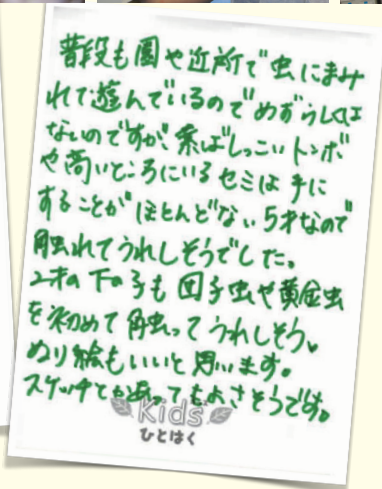 普段も園や近所で虫にまみ
れて遊んでいるのでめずらしくは
ないのですが、素ばしっこいトンボ
や高いところにいるセミは手に
することがほとんどない5才なので
触れてうれしそうでした。
2才の下の子も団子虫や黄金虫
を初めて触ってうれしそう。
ぬり絵もいいと思います。
スケッチとかあってもよさそうです。
Kids
ひとはく